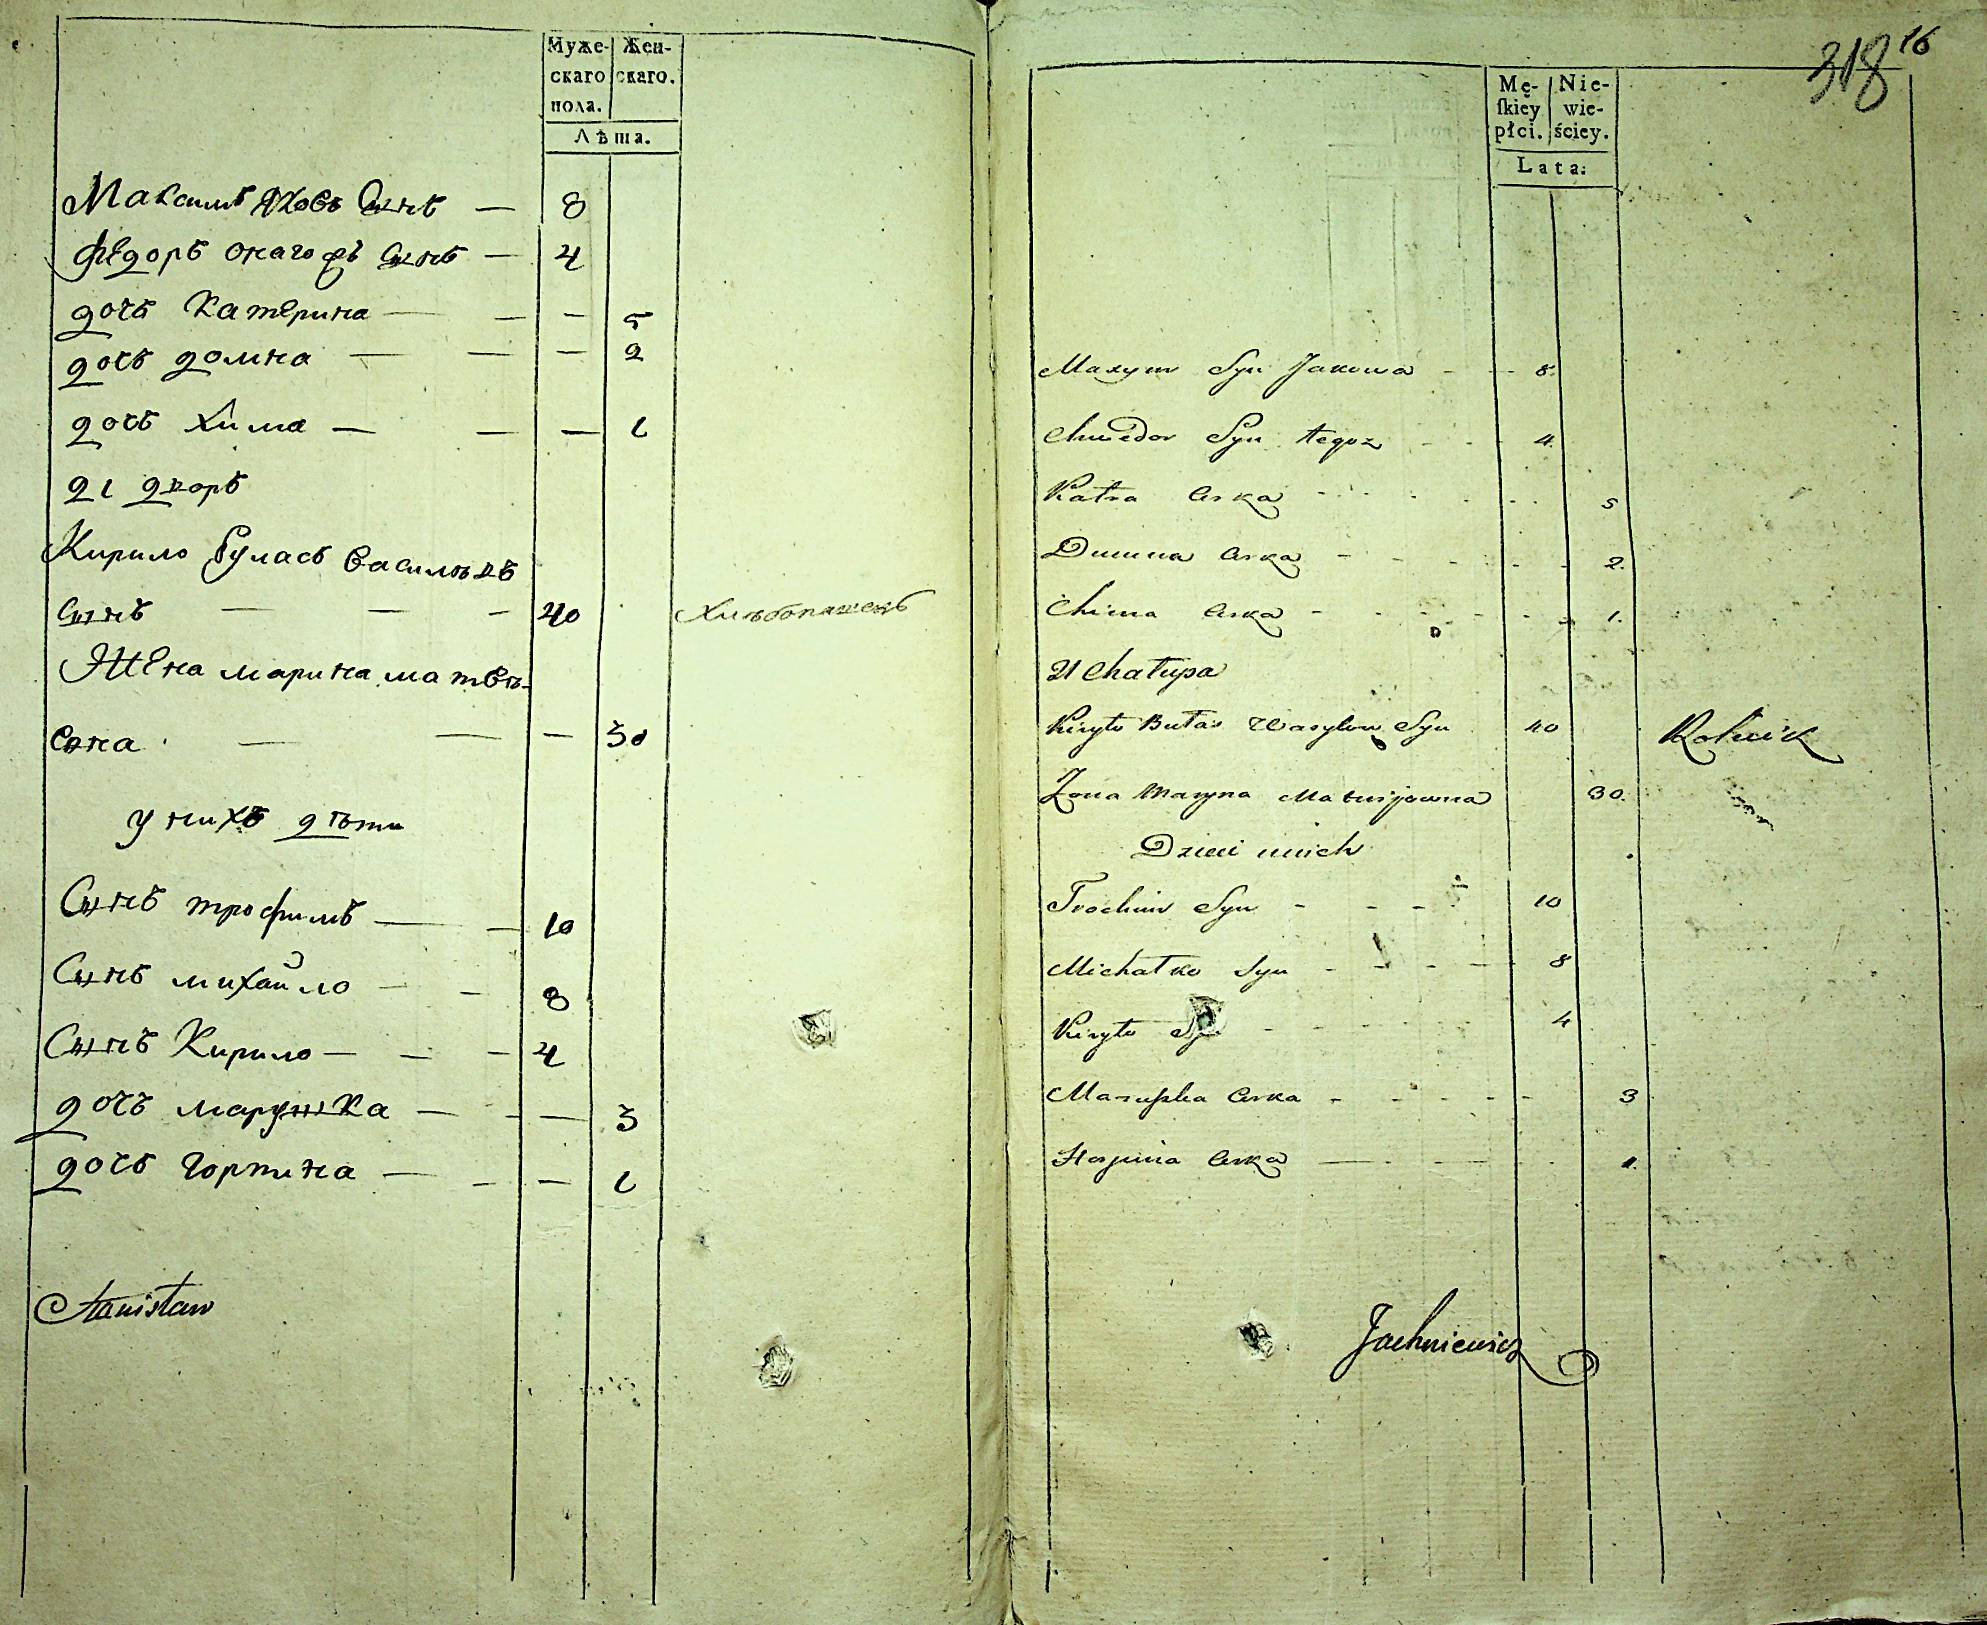 Муже-
скаго
пола.
Жен-
скаго.
Лѣта.
Максимъ Яковъ Сынъ — 8
Федоръ онагожъ Сынъ — 4
дочь Катерина — — — 5
дочь домна — — — 2
дочь Хима — — — 1
21 дворъ
Кирило Буласъ Васильевъ
Сынъ — — — 40 Хлѣбопашецъ
Жена марина матвѣ-
евна — — — 30
у нихъ дѣти
Сынъ трофимъ — — 10
Сынъ михайло — — 8
Сынъ Кирило — — — 4
дочь марушка — — — 3
дочь горпина — — — 1
Stanisław
318 16
Mę-
skiey
płci.
Nie-
wie-
ściey.
Lata:
Maxym Syn Jakowa - - 8.
Chwedor Syn tegoż - - - 4.
Katra Crka - - - - - 5
Dumna Crka - - - - - 2.
Chima Crka - - - - - 1.
21 Chałupa
Kiryło Bułas Wasylow Syn 40 Rolnik
Żona Maryna Matwijowna 30.
Dzieci unich
Trochim Syn - - - - 10
Michałko Syn - - - - 8
Kiryło Syn - - - - 4
Maruszka Crka - - - - - 3
Horpina Crka — - — - - 1.
Jachniewicz